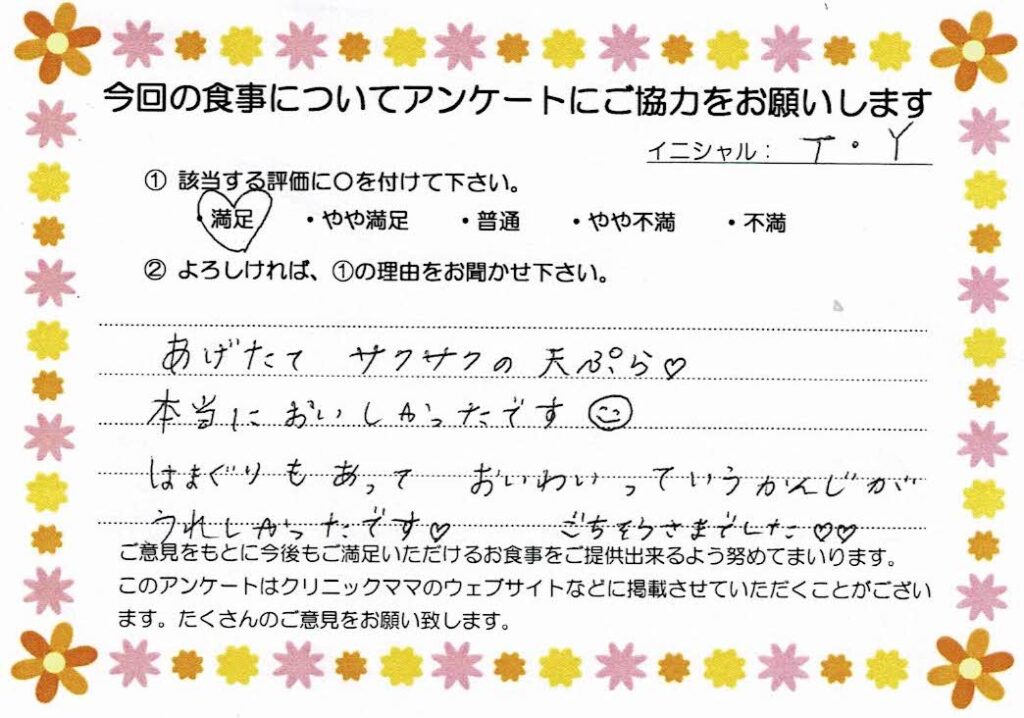 今回の食事についてアンケートにご協力をお願いします
イニシャル： T・Y
① 該当する評価に○を付けて下さい。
・満足 ・やや満足 ・普通 ・やや不満 ・不満
② よろしければ、①の理由をお聞かせ下さい。
あげたて サクサクの 天ぷら♡
本当に おいしかったです ☺
はまぐりもあって おいわいっていうかんじが
うれしかったです♡ ごちそうさまでした♡♡
ご意見をもとに今後もご満足いただけるお食事をご提供出来るよう努めてまいります。
このアンケートはクリニックママのウェブサイトなどに掲載させていただくことがござい
ます。たくさんのご意見をお願い致します。